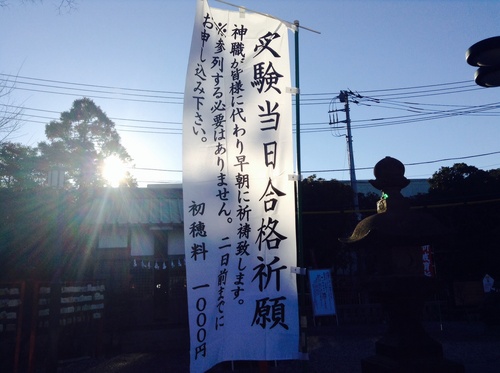 受験当日合格祈願
神職が皆様に代わり早朝に祈祷致します。
※参列する必要はありません。二日前までに
お申し込み下さい。
初穂料 一000円